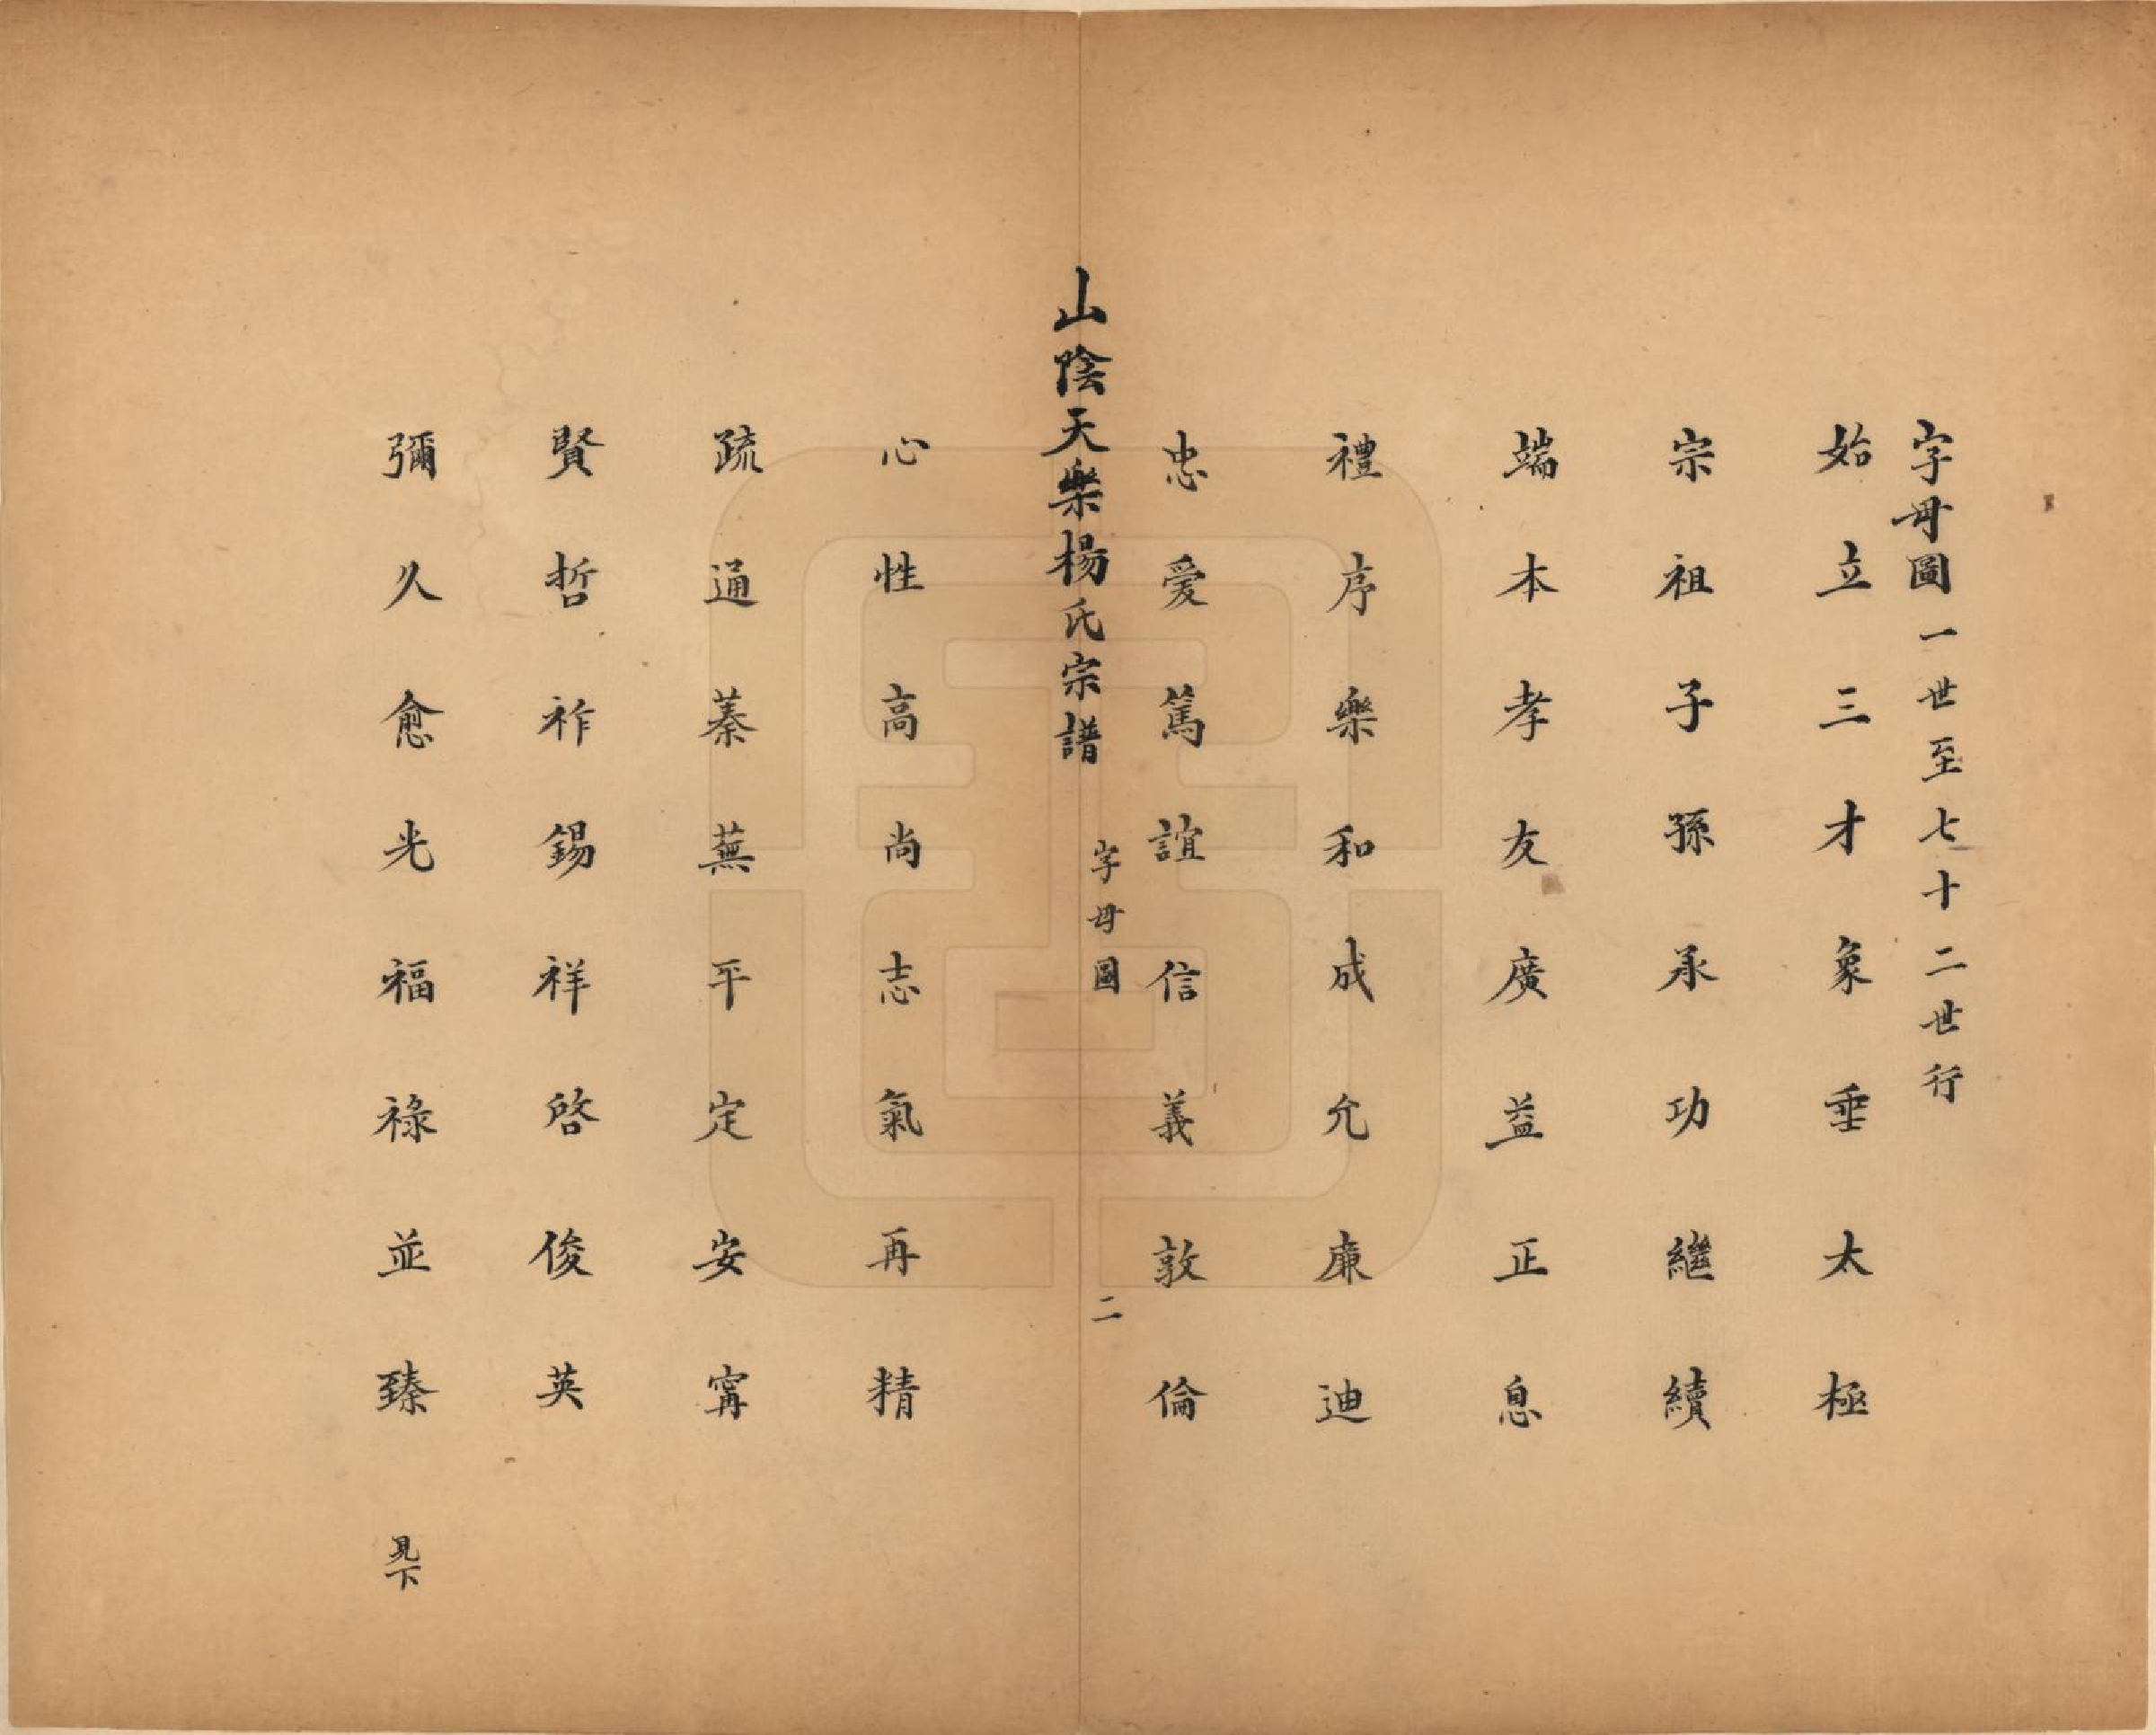 字母圖一世至七十二世行
始立三才象垂太極
宗祖子孫承功繼續
端本孝友廣益正息
禮序樂和成允廉迪
忠愛篤誼信義敦倫
山陰天樂楊氏宗譜
字母圖
二
心性高尚志氣再精
疏通蓁蕪平定安寗
賢哲祚錫祥啓俊英
彌久愈光福祿並臻
見下